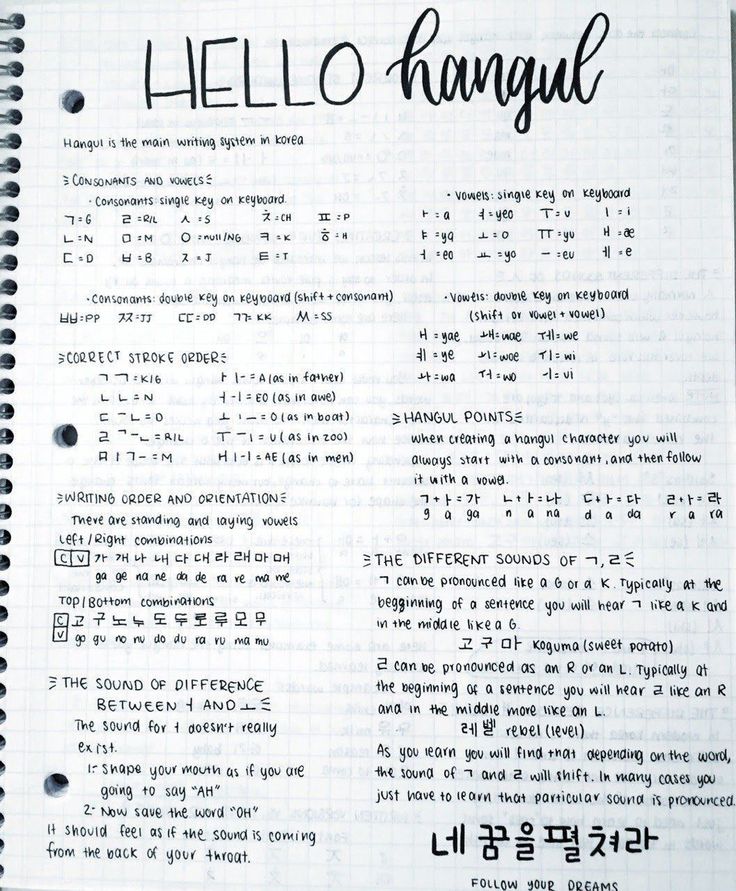 HELLO hangul
Hangul is the main writing system in Korea
CONSONANTS AND VOWELS
· Consonants: single key on keyboard.
ㄱ=G ㄹ=R/L ㅅ=S ㅊ=CH ㅍ=P
ㄴ=N ㅁ=M ㅇ=null/NG ㅋ=K ㅎ=H
ㄷ=D ㅂ=B ㅈ=J ㅌ=T
· Consonants: double key on keyboard (shift + consonant)
ㅃ=PP ㅉ=JJ ㄸ=DD ㄲ=KK ㅆ=SS
CORRECT STROKE ORDER
ㄱ ㄱ=K/G
ㄴ ㄴ=N
ㄷ ㄱㄴ=D
ㄹ ㄱ一ㄴ=R/L
ㅁ ㅣㄱ一=M
ㅏ ㅣ一=A (as in father)
ㅓ 一ㅣ=EO (as in awe)
ㅗ ㅣ一=O (as in boat)
ㅜ 一ㅣ=U (as in zoo)
ㅐ ㅣ一ㅣ=AE (as in men)
WRITING ORDER AND ORIENTATION
There are standing and laying vowels
Left/Right combinations
C V 가 개 나 내 다 대 라 래 마 매
ga ge na ne da de ra re ma me
Top/Bottom combinations
C 고 구 노 누 도 두 로 루 모 무
V go gu no nu do du ra ru ma mu
THE SOUND OF DIFFERENCE
BETWEEN ㅓ AND ㅗ
The sound for ㅓ doesn't really
exist.
1- Shape your mouth as if you are
going to say "AH"
2- Now save the word "OH"
It should feel as if the sound is coming
from the back of your throat.
· Vowels: single key on keyboard
ㅏ=a ㅕ=yeo ㅜ=u ㅣ=i
ㅑ=ya ㅗ=o ㅠ=yu ㅐ=æ
ㅓ=eo ㅛ=yo ㅡ=eu ㅔ=e
· Vowels: double key on keyboard
(shift or vowel + vowel)
ㅒ=yae ㅙ=wae ㅞ=we
ㅖ=ye ㅚ=woe ㅟ=wi
ㅘ=wa ㅝ=wo ㅢ=vi
HANGUL POINTS
when creating a hangul character you will
always start with a consonant, and then follow
it with a vowel.
ㄱ+ㅏ=가 ㄴ+ㅏ=나 ㄷ+ㅏ=다 ㄹ+ㅏ=라
g a ga n a na d a da r a ra
THE DIFFERENT SOUNDS OF ㄱ, ㄹ
ㄱ can be pronounced like a G or a K. Typically at the
begginning of a sentence you will hear ㄱ like a K and
in the middle like a G.
고 구 마 Koguma (sweet potato)
ㄹ can be pronounced as an R or an L. Typically at
the beginning of a sentence you will hear ㄹ like an R
and in the middle more like an L.
레 벨 rebel (level)
As you learn you will find that depending on the word,
the sound of ㄱ and ㄹ will shift. In many cases you
just have to learn that particular sound is pronounced.
네 꿈을 펼쳐라
FOLLOW YOUR DREAMS